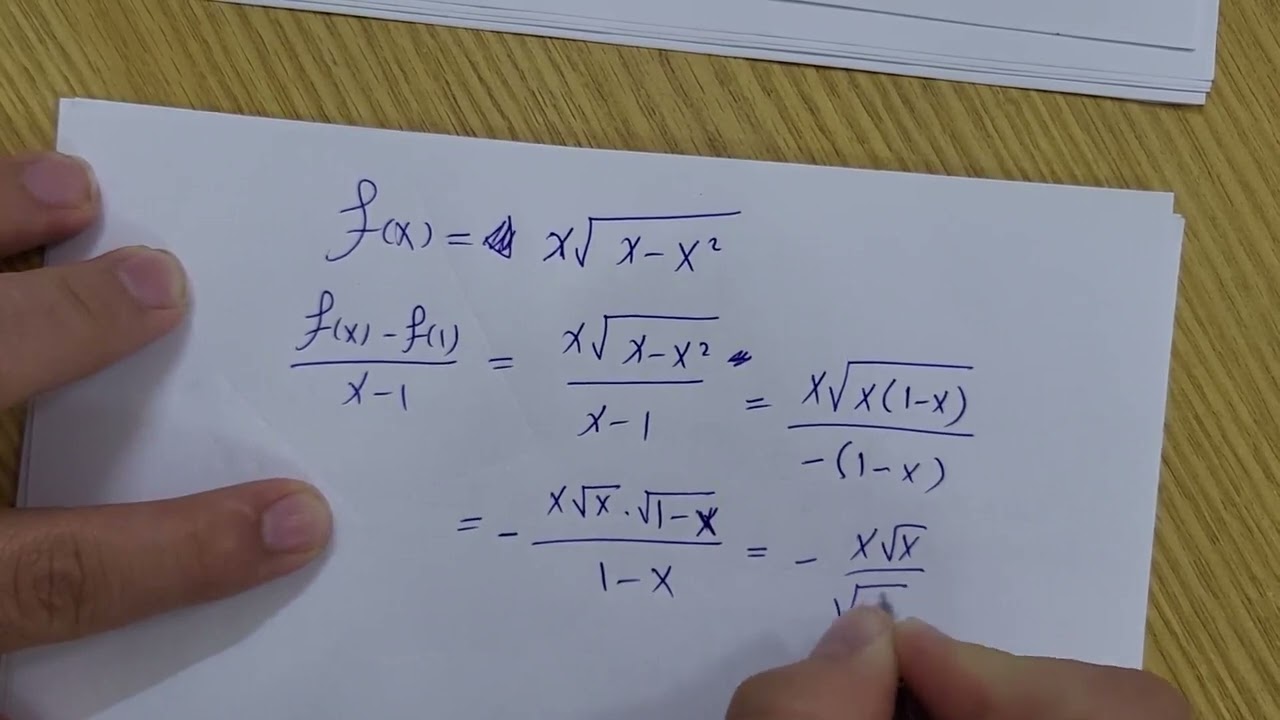 f(x) = x√(x-x²)
(f(x) - f(1))/(x-1) = x√(x-x²)/(x-1) = x√(x(1-x))/(-(1-x))
= - (x√x · √(1-x))/(1-x) = - x√x/√